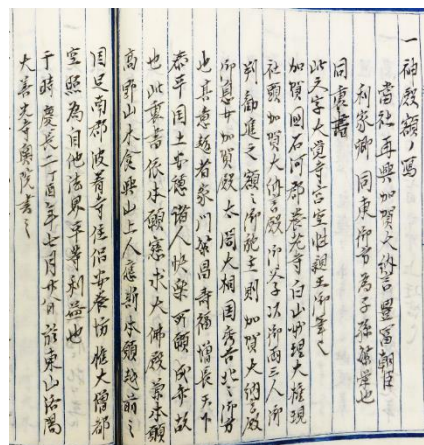 一 神殿額ノ写
當社再興加賀大納言豊富朝臣
利家卿同東御方為子孫繁学也
同裏書
此文字大覚寺宮空性親王御筆也
加賀国石河郡養老寺白山妙理大権現
社頭加賀大納言殿御父子次御両三人御
判勧進之額之御施主則加賀大納言殿
御息女加賀殿太閤大相国秀吉北之御方
也其意趣者家門栄昌寿福増長天下
泰平国土安穏諸人快楽所願成弁故
也此裏書依本願憲求大佛殿衆本願
高野山木食興山上人應斯本願越前之
国足南郡波着寺住侶安養坊惟大僧都
空照為自他法界平等利益也
于時慶長二丁酉年七月廿八日於東山活高
大善光寺奥院書之